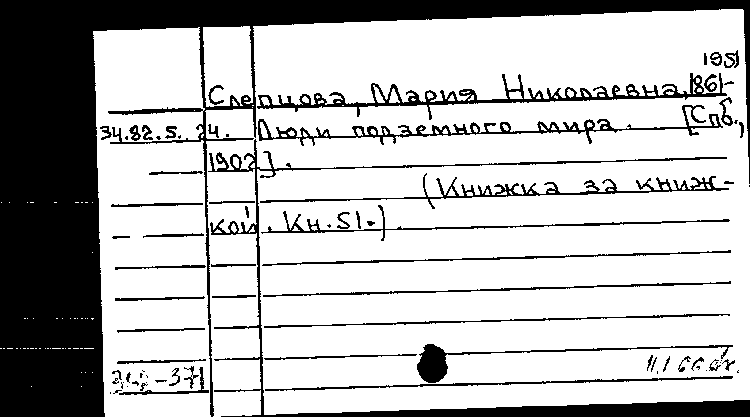 1951
Слепцова, Мария Николаевна, 1861-
34.82.5.24. Люди подземного мира. [Спб.,
1902].
(Книжка за книж-
кой. Кн. 51.).